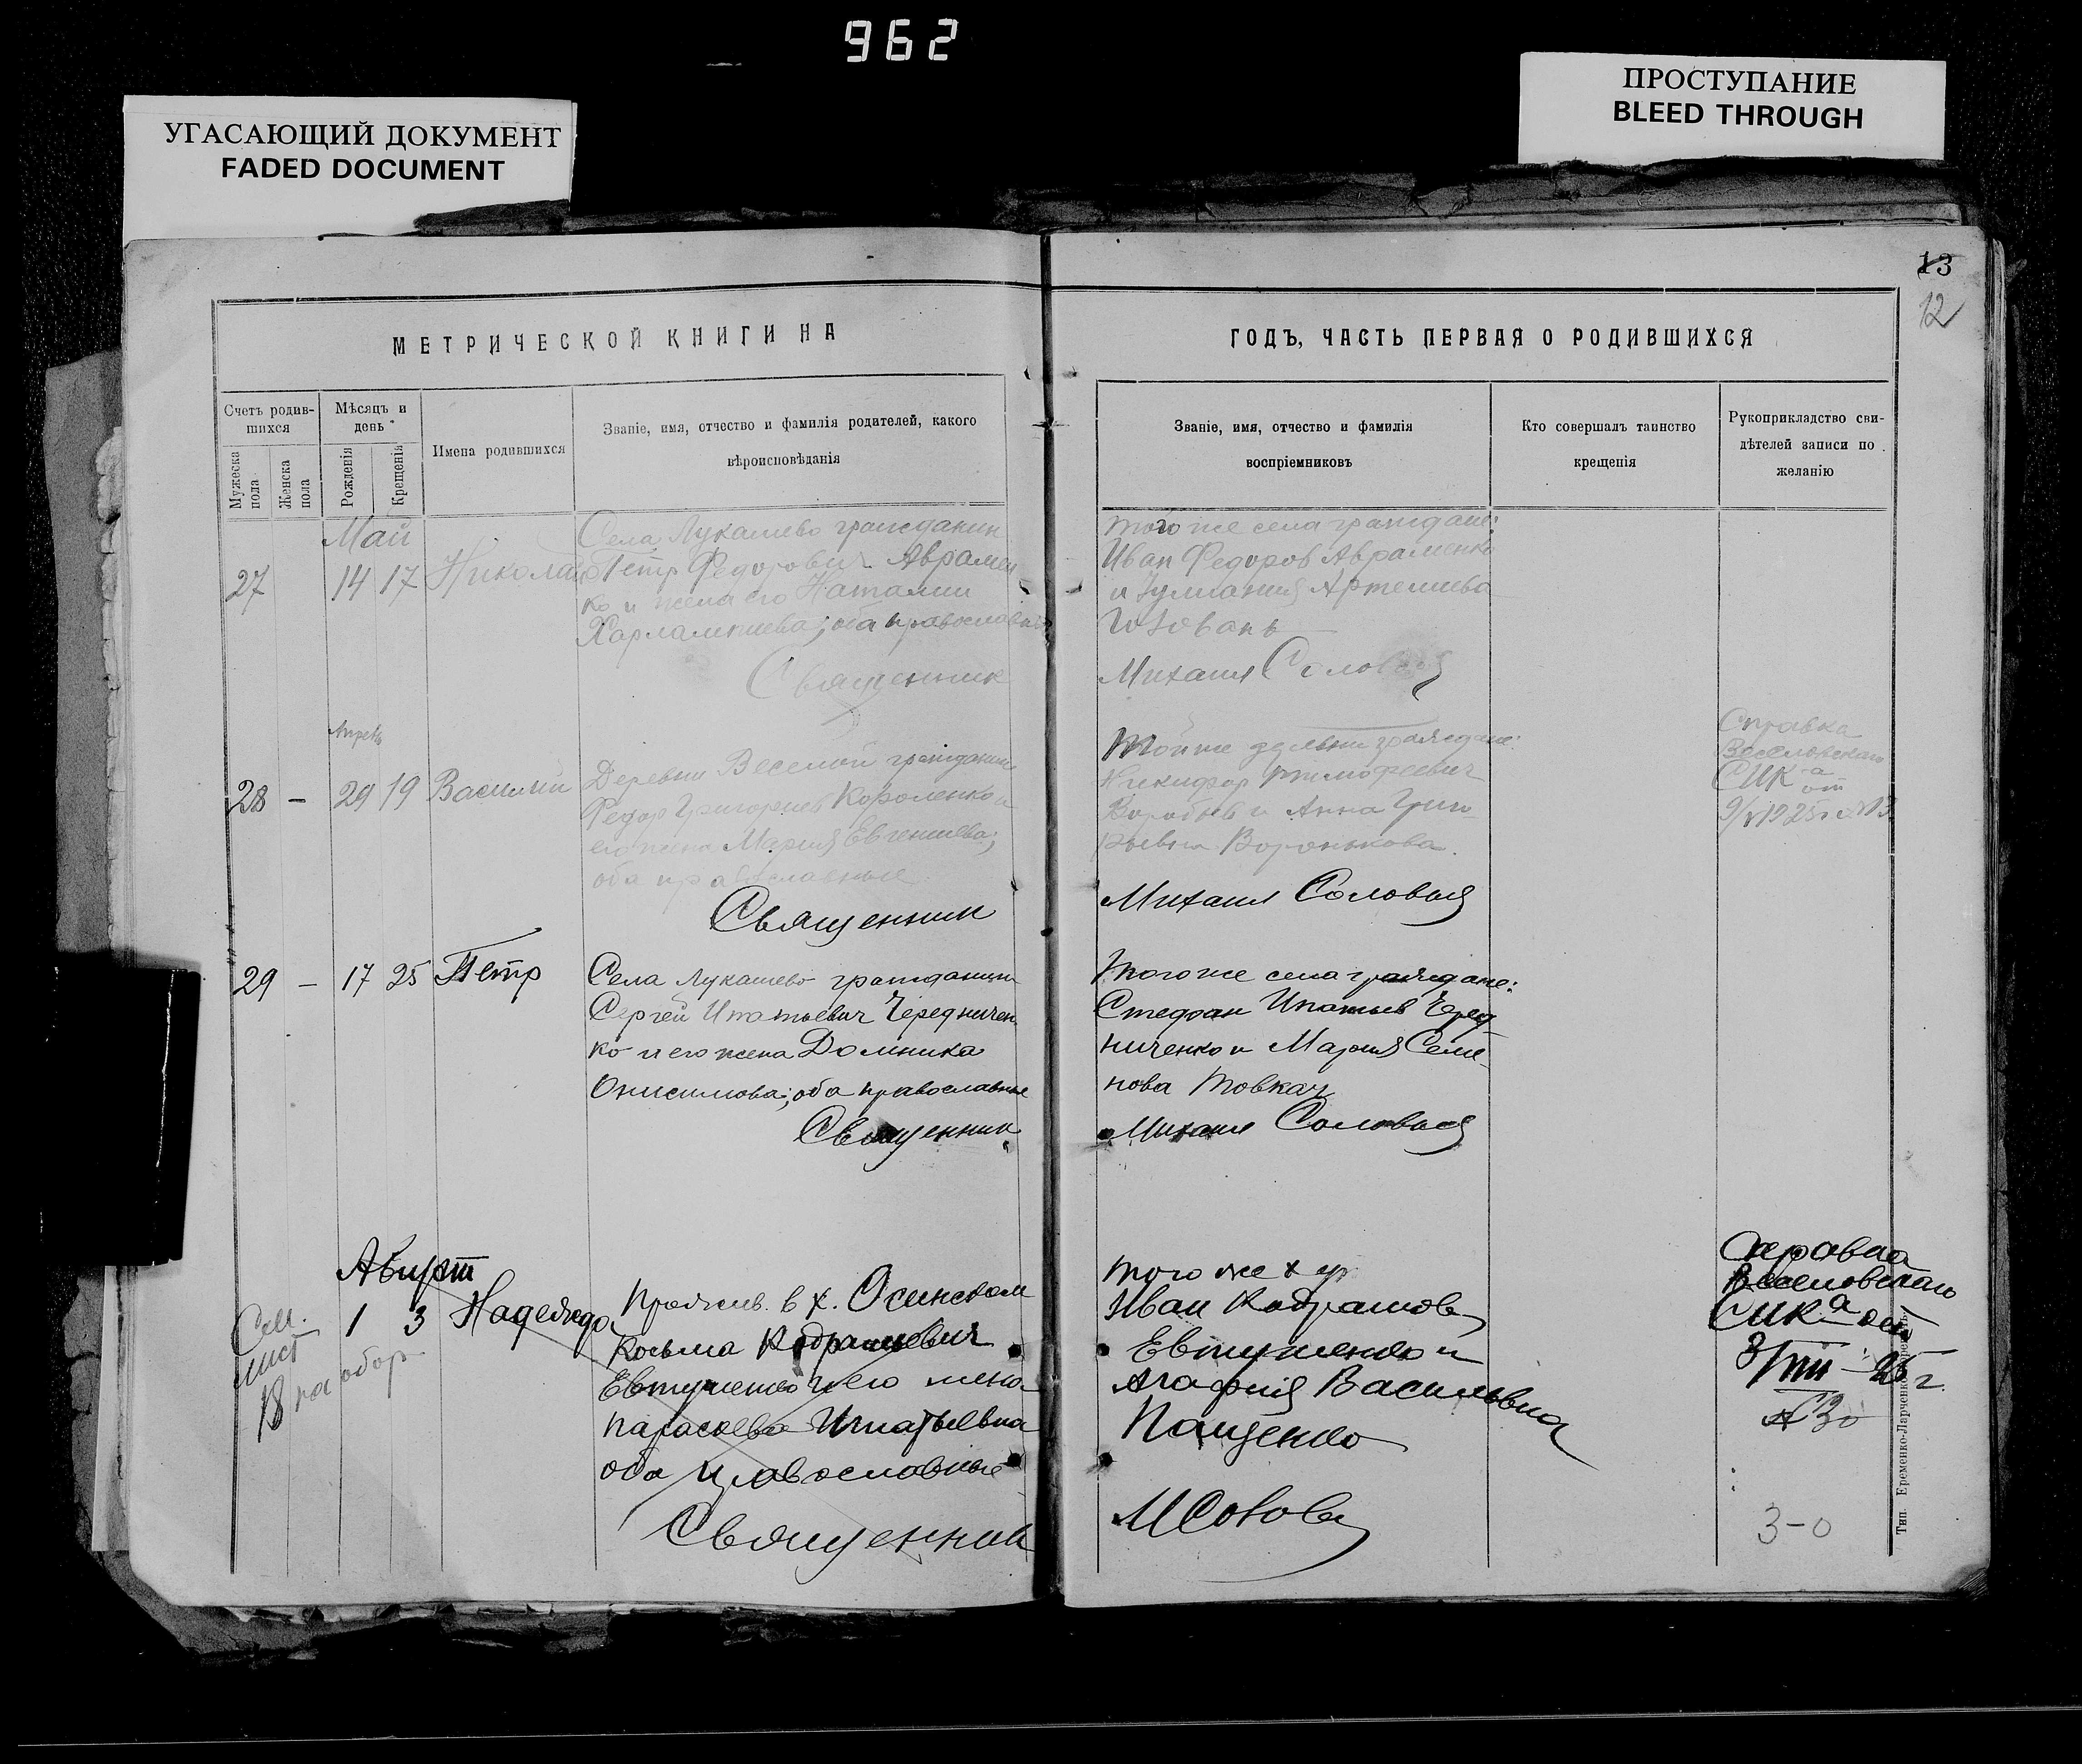 962
УГАСАЮЩИЙ ДОКУМЕНТ
FADED DOCUMENT
ПРОСТУПАНИЕ
BLEED THROUGH
13
12
МЕТРИЧЕСКОЙ КНИГИ НА
ГОДЪ, ЧАСТЬ ПЕРВАЯ О РОДИВШИХСЯ
Счетъ родив-
шихся
Мужеска
пола
Женска
пола
Мѣсяцъ и
день
Рожденія
Крещенія
Имена родившихся
Званіе, имя, отчество и фамилія родителей, какого
вѣроисповѣданія
Званіе, имя, отчество и фамилія
воспріемниковъ
Кто совершалъ таинство
крещенія
Рукоприкладство сви-
дѣтелей записи по
желанію
Май
27 14 17 Николай
Села Лукашево гражданин
Петр Федорович Аврамен
ко и жена его Наталии
Харлампиева; оба православные
Священник
того же села граждане:
Иван Федоров Авраменко
и Артемиева
Михаил Соловьев
Апрель
28 – 29 19 Василий
Деревни Веселой гражданин
Федор Григориев Короленко и
его жена Мария Евгениева;
оба православные
Священник
Той же деревни граждане:
Никифор Тимофеевич
Воробьев и Анна Григо
рьевна Воронькова.
Михаил Соловьев
Справка
Веселовскаго
СИК-а от
29 – 17 25 Петр
Села Лукашево гражданин
Сергей Ипатьевич Чередничен
ко и его жена Домника
Онисимова; оба православные
Священник
Того же села граждане:
Стефан Ипатьев Черед
ниченко и Мария Семе
нова Товкач
Михаил Соловьев
Август
1 3 Надежда
См.
лист
18 на обор
Прожив. в х. Осинском
Козьма Кодратович
Евтушенко и его жена
Параскева Игнатьевна
оба православные
Священник
того же х
Иван Кодратов
Евтушенко и
Агафия Васильевна
Пащенко
М Соловьев
Справка
Веселовскаго
СИК-а от
8/VIII – 25 г.
3-0
Тип. Еременко-Ларченко